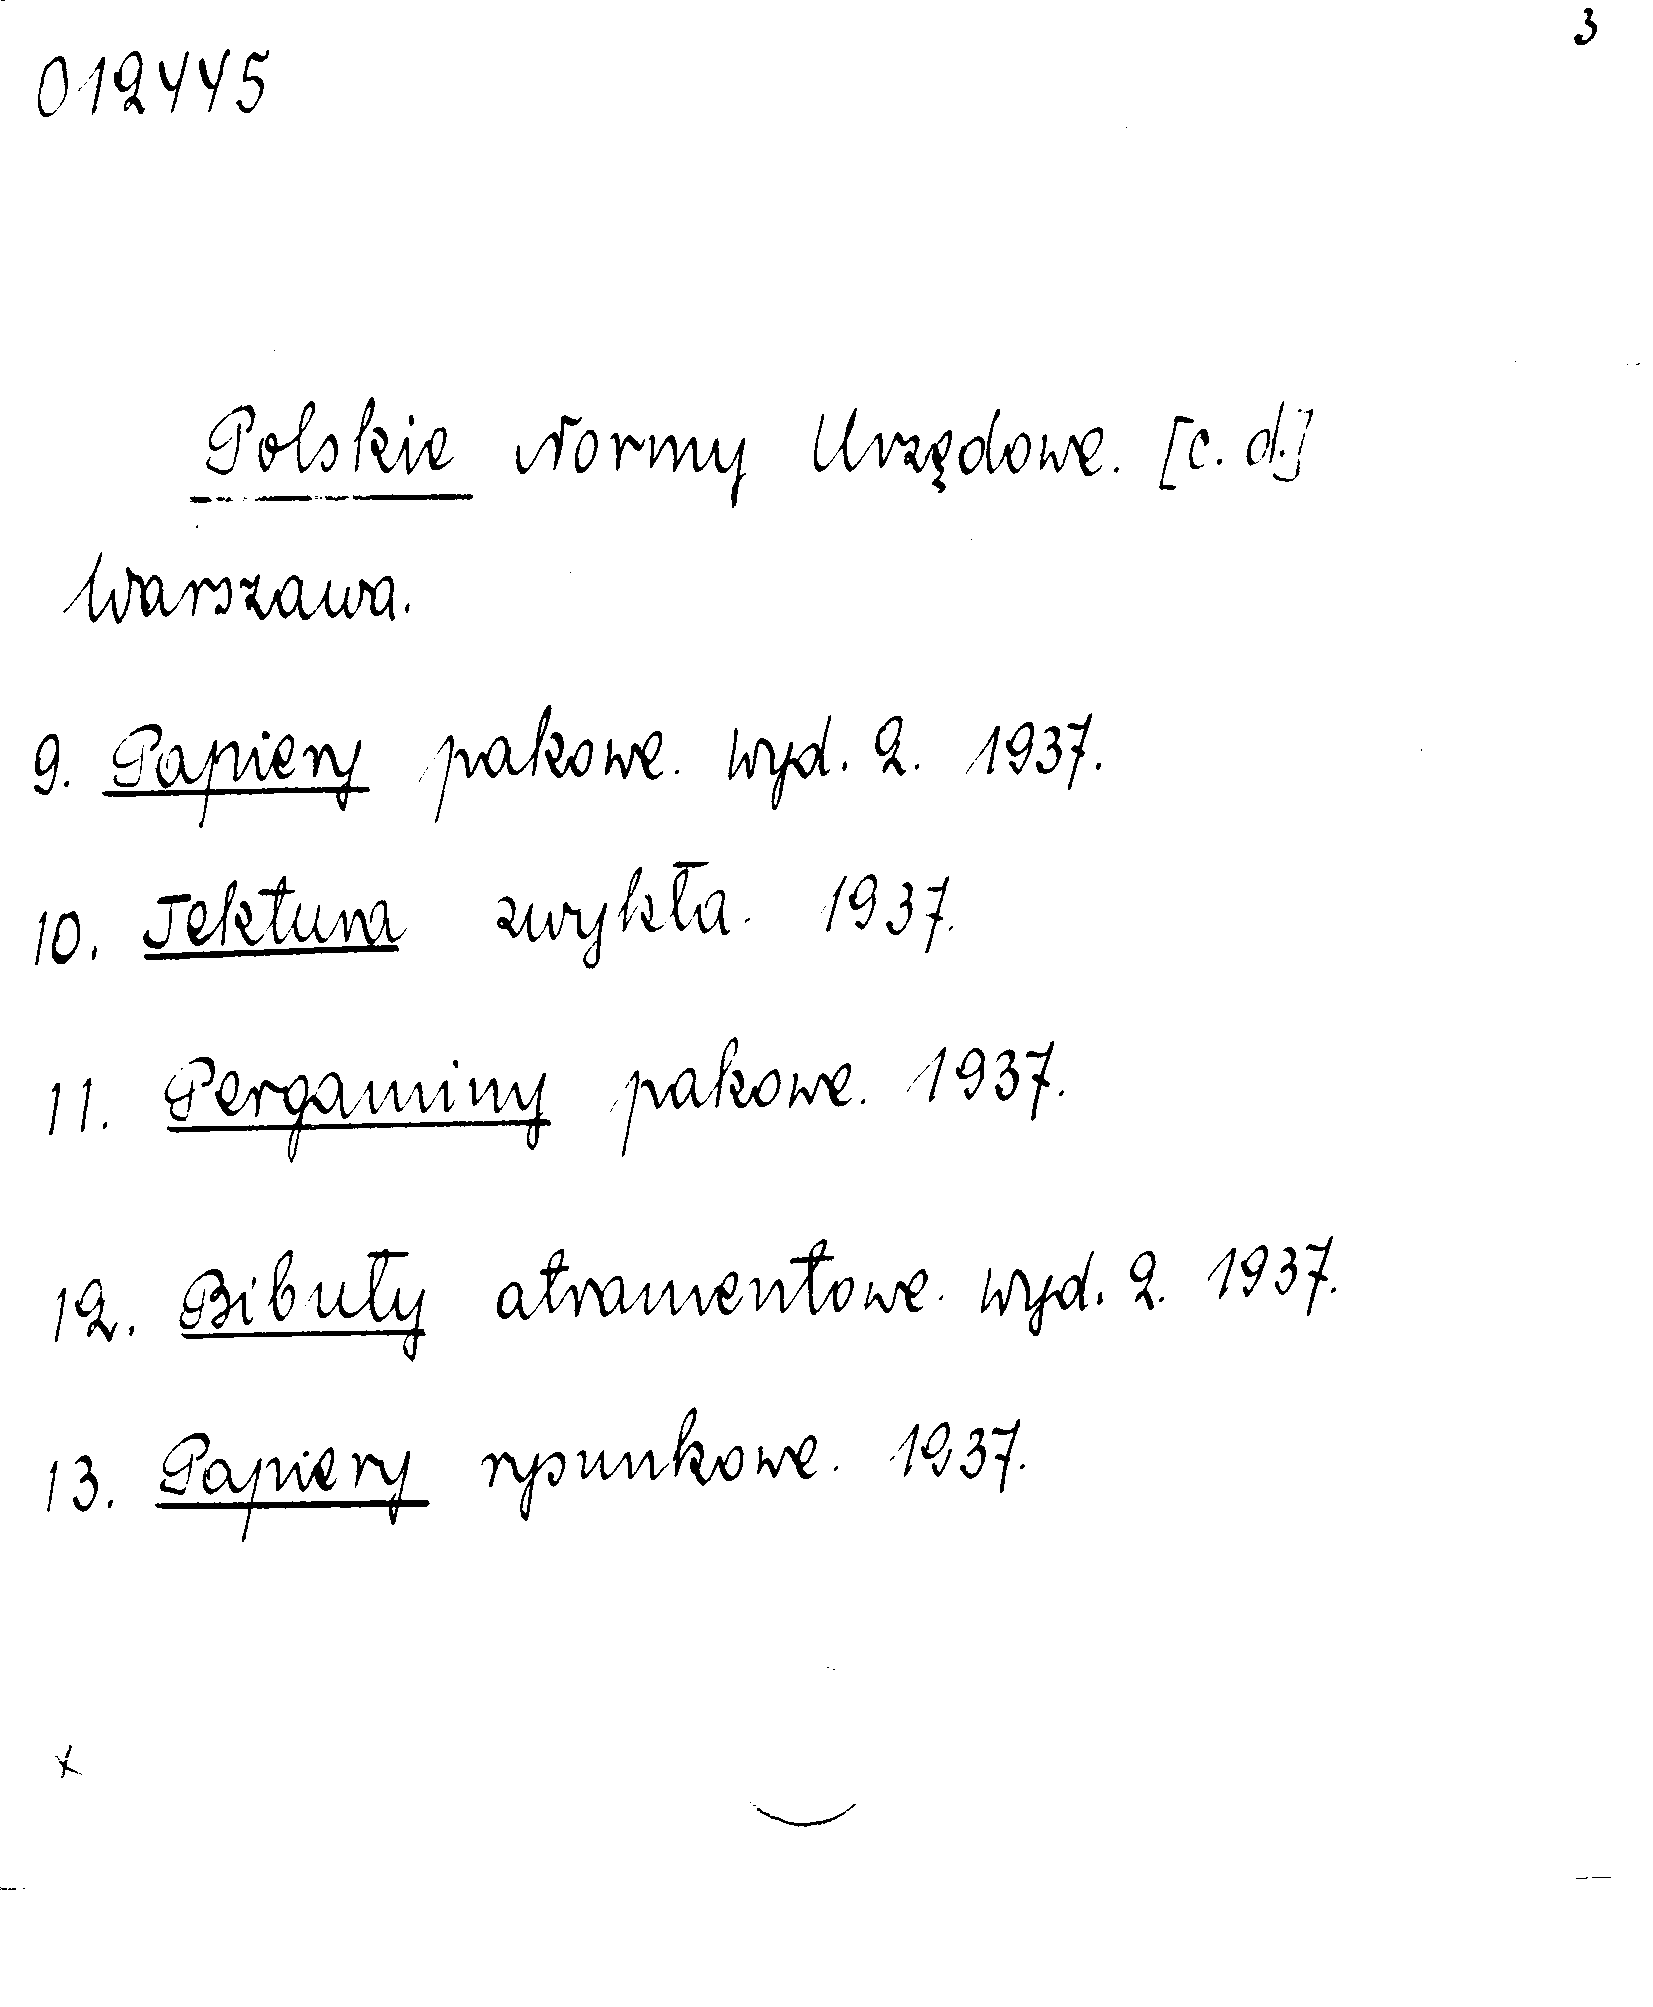 3
012445
Polskie Normy Urzędowe. [c. d.]
Warszawa.
9. Papiery pakowe. wyd. 2. 1937.
10. Tektura zwykła. 1937.
11. Pergaminy pakowe. 1937.
12. Bibuły atramentowe. wyd. 2. 1937.
13. Papiery rysunkowe. 1937.
x